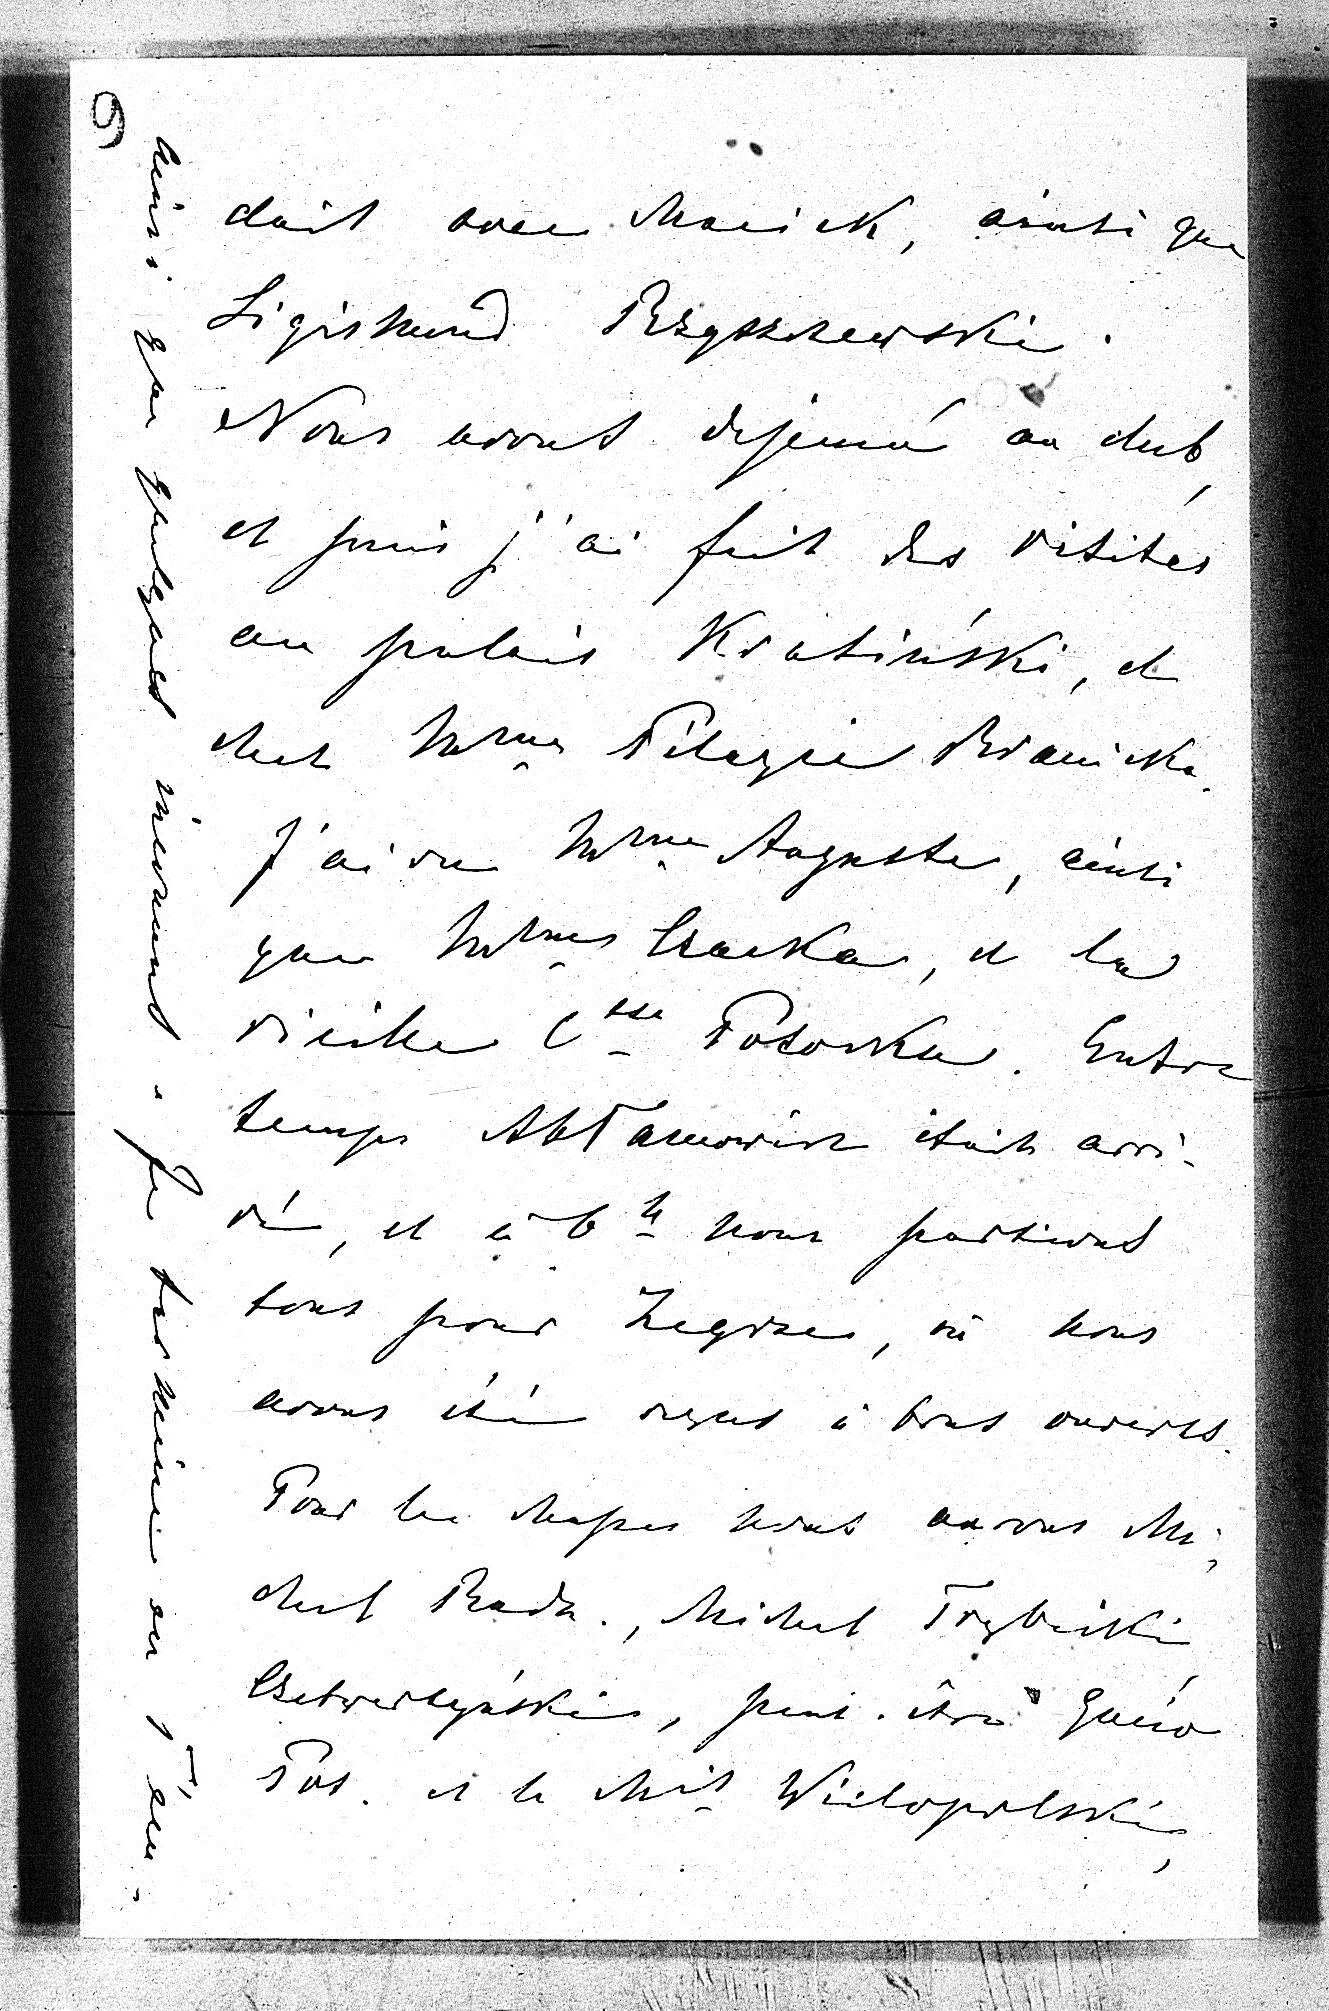 9
dait avec Maciek, ainsi que
Sigismund Rzyszczewski.
Nous avons déjeuné au club,
et puis j'ai fait des visites
au palais Krasiński, et
chez Mme Pélagie Branicka.
J'ai vu Mme Auguste, ainsi
que Mmes Czacka, et la
vieille Csse Potocka. Entre
temps Abramowicz était arri-
vé, et à 6h nous partions
tous pour Zegrze, où nous
avons été reçus à bras ouverts.
Pour les chasses nous aurons Mi-
chel Radz., Michel Trzbiński
Czetwertyński, peut-être Gucio
Pot. et le Mis Wielopolski,
ainsi que quelques inconnus. Je termine en t'em-